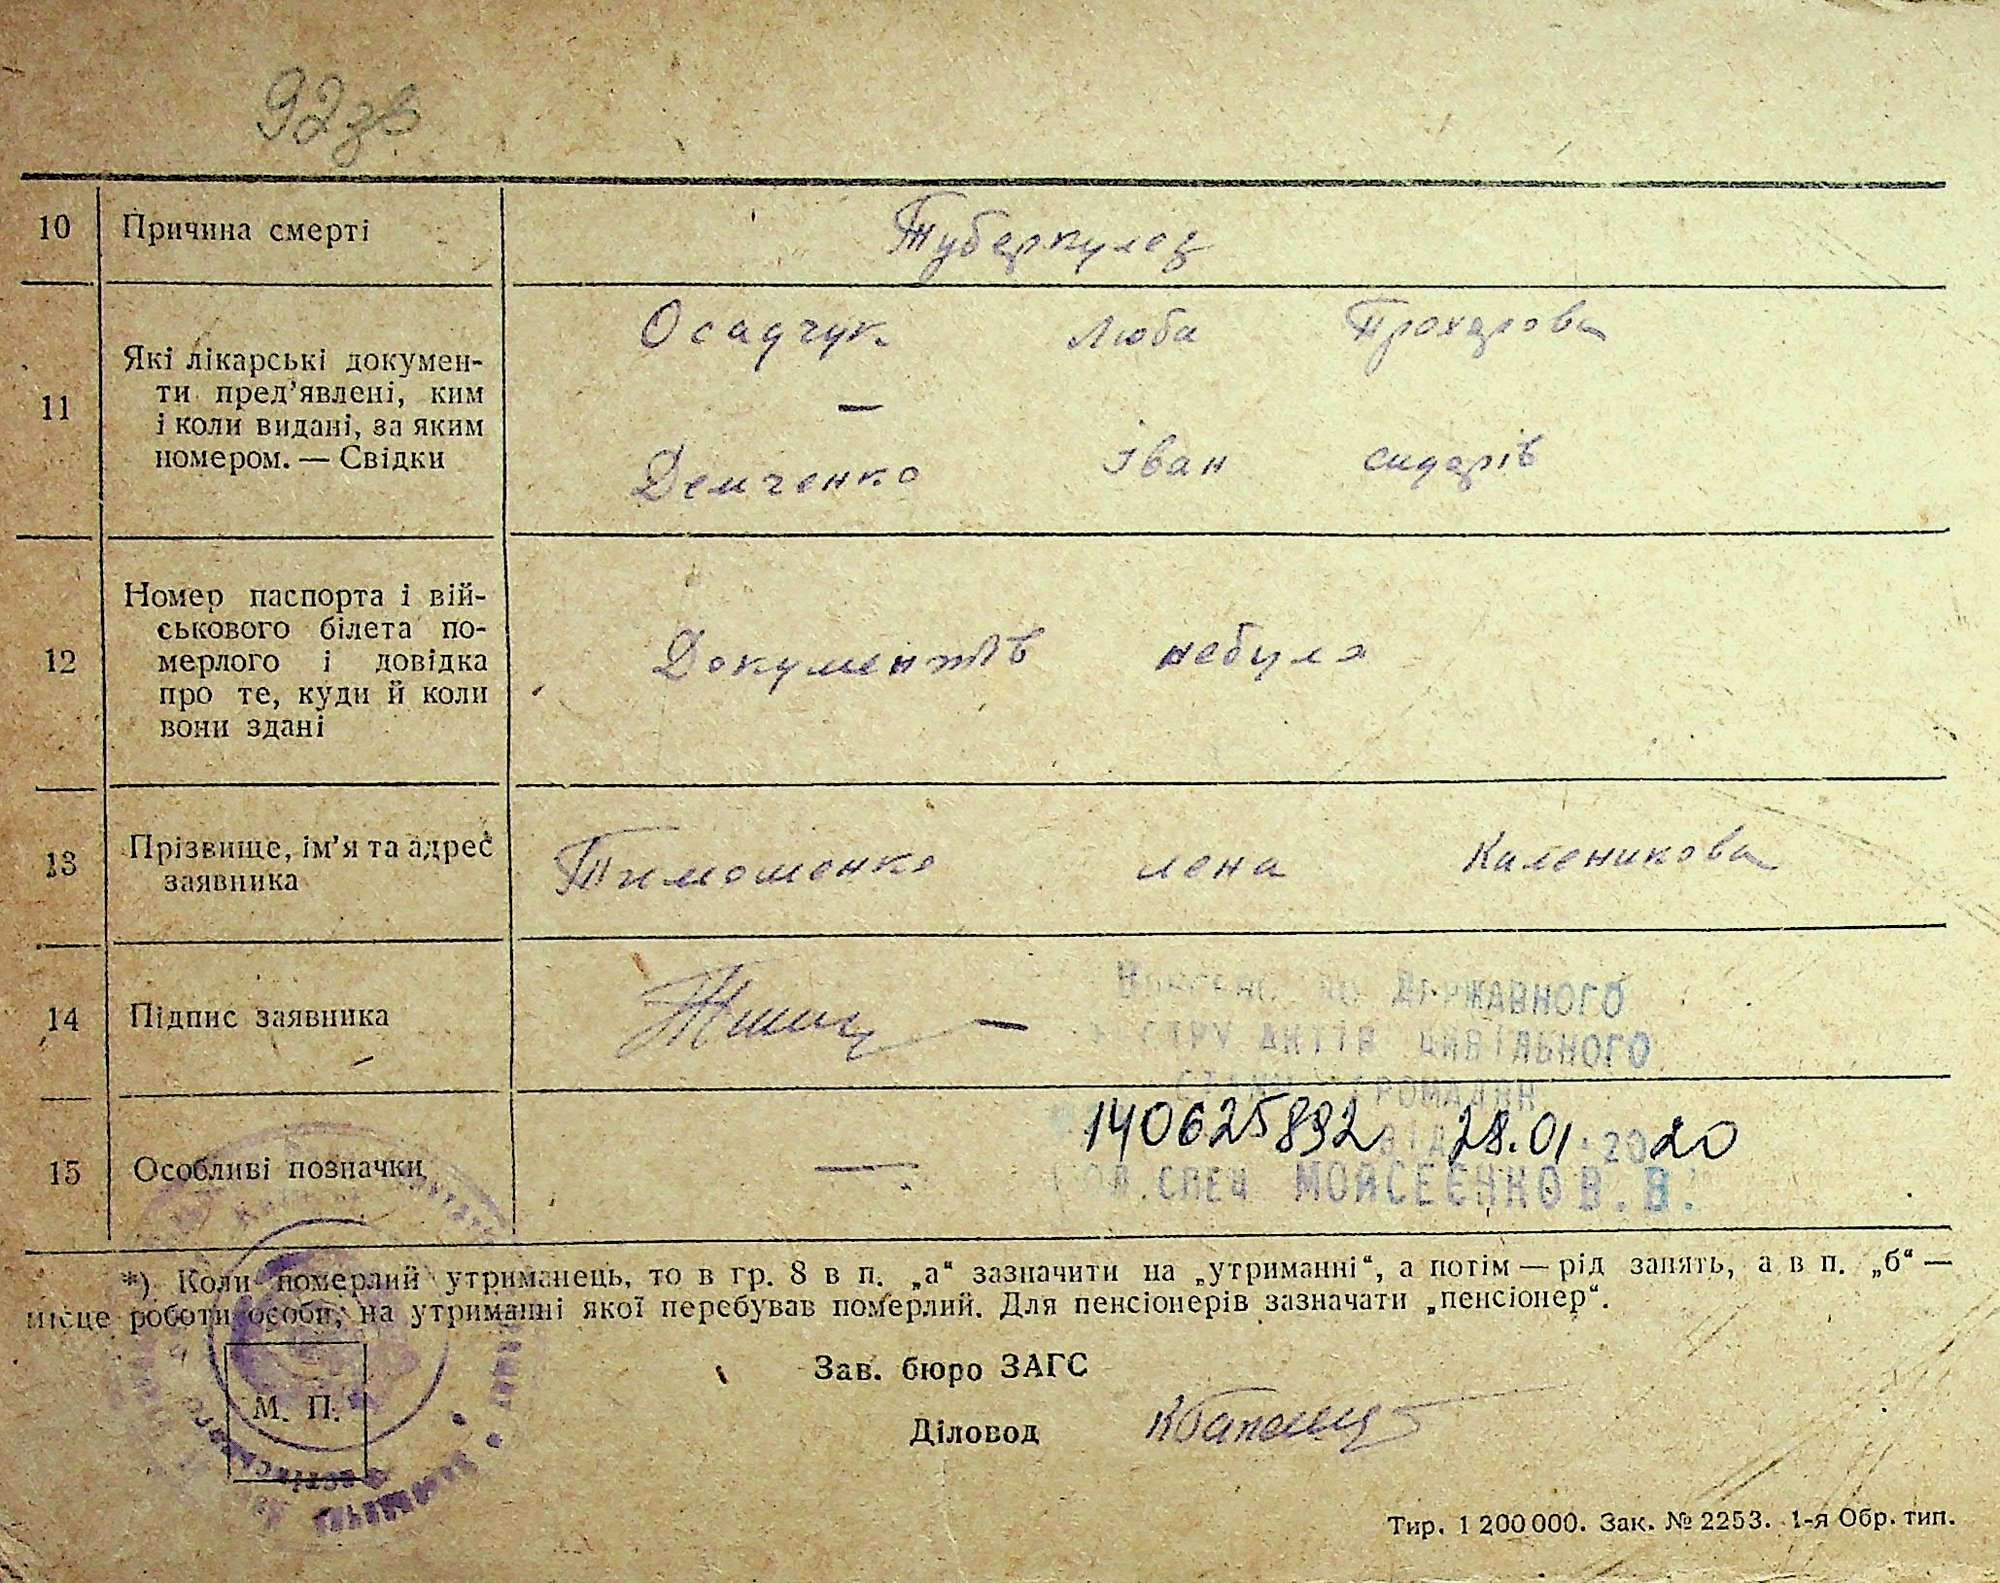 92зв
10 Причина смерті Туберкулез
11 Які лікарські докумен-
ти пред’явлені, ким
і коли видані, за яким
номером. — Свідки
Осадчук Люба Прохорова
—
Демченко Іван сидорів
12 Номер паспорта і вій-
ськового білета по-
мерлого і довідка
про те, куди й коли
вони здані
Документів небуло
13 Прізвище, ім’я та адрес
заявника
Тимошенко лена Каленикова
14 Підпис заявника
ДЕРЖАВНОГО
АКТІВ ЦИВІЛЬНОГО
СТАНУ ГРОМАДЯН
140625892 ВІД 28.01.2020
СПЕЦ МОЙСЕЄНКО В.В.
15 Особливі позначки —
*) Коли померлий утриманець, то в гр. 8 в п. „а“ зазначити на „утриманні“, а потім — рід занять, а в п. „б“ —
місце роботи особи, на утриманні якої перебував померлий. Для пенсіонерів зазначати „пенсіонер“.
Зав. бюро ЗАГС
М. П.
Діловод
Тир. 1 200 000. Зак. № 2253. 1-я Обр. тип.